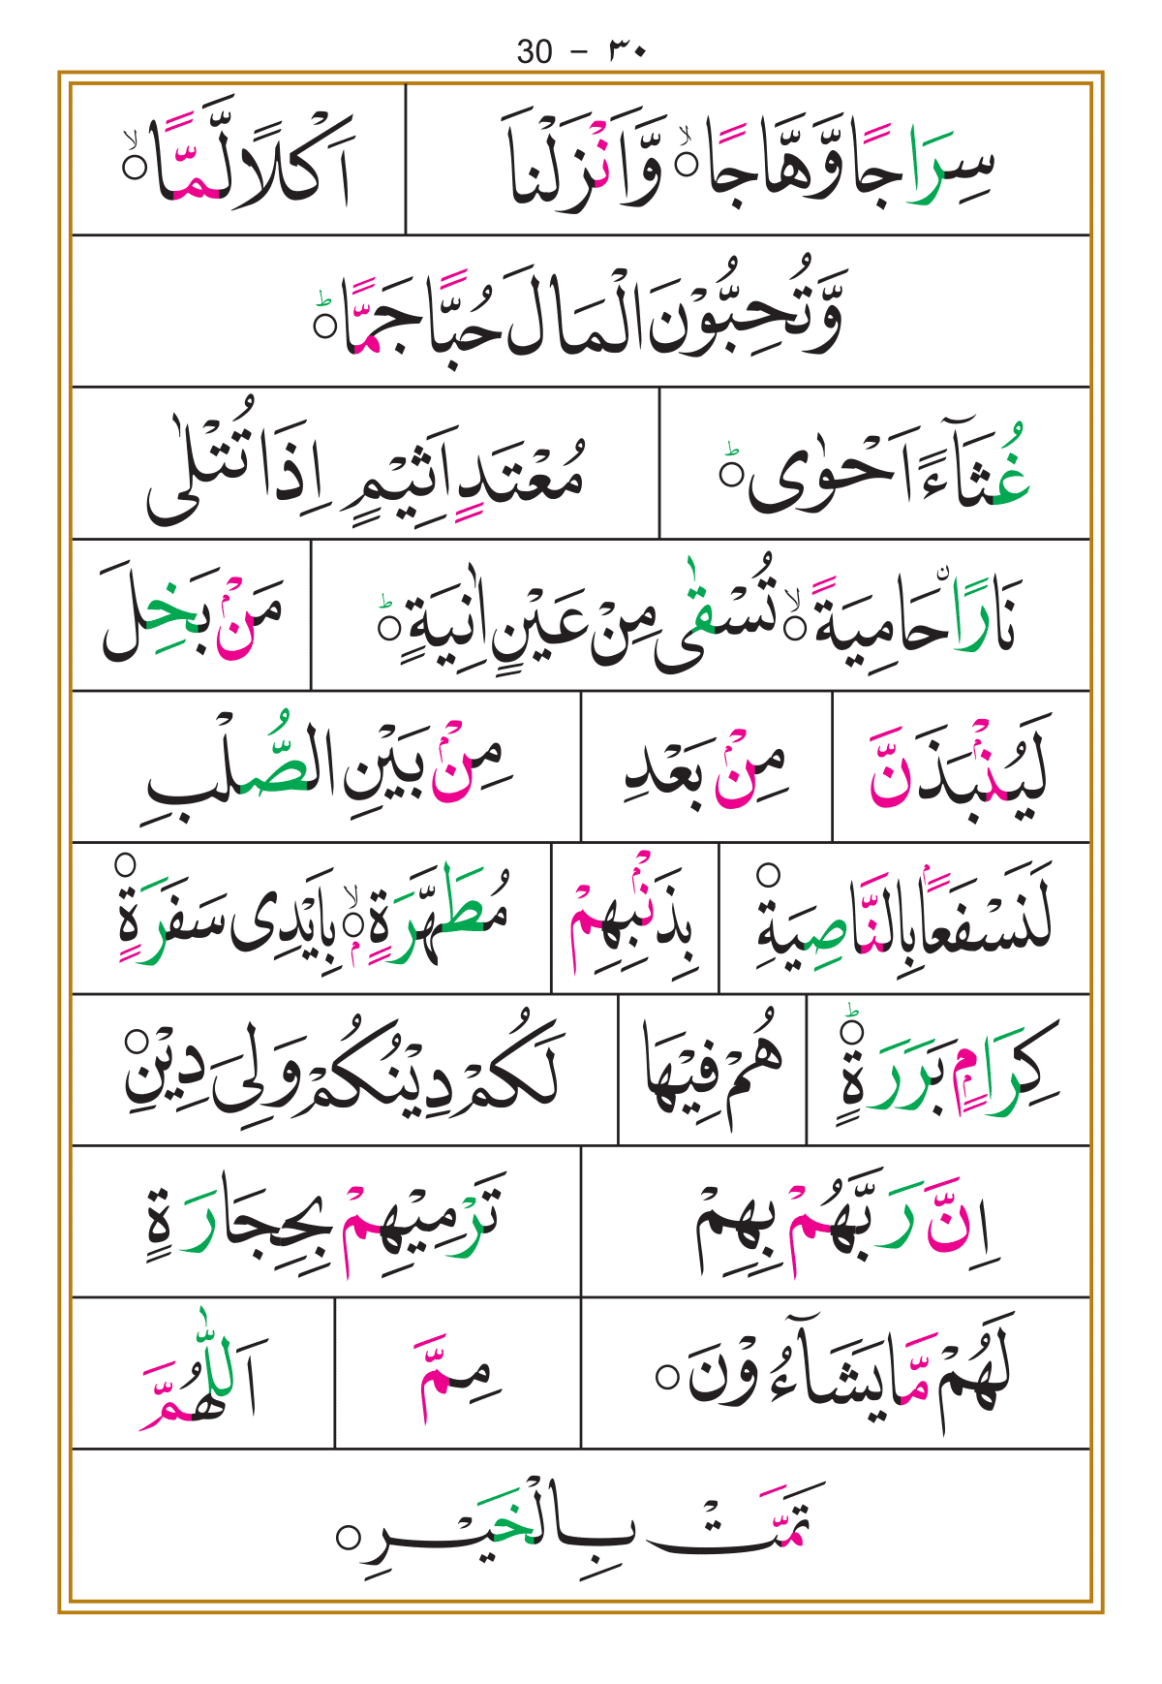 30 – ٣٠
سِرَاجًا وَّهَّاجًا ۙ وَّاَنْزَلْنَا اَكْلًا لَّمًّا ۙ
وَّتُحِبُّوْنَ الْمَالَ حُبًّا جَمًّا ؕ
غُثَآءً اَحْوٰى ؕ مُعْتَدٍ اَثِيْمٍ اِذَا تُتْلٰى
نَارًا حَامِيَةً ۙ تُسْقٰى مِنْ عَيْنٍ اٰنِيَةٍ ؕ مَنْۢ بَخِلَ
لَيُنْۢبَذَنَّ مِنْۢ بَعْدِ مِنْۢ بَيْنِ الصُّلْبِ
لَنَسْفَعًۢا بِالنَّاصِيَةِ ۝ بِذَنْۢبِهِمْ مُطَهَّرَةٍۭ ۙ بِاَيْدِى سَفَرَةٍ ۝
كِرَامٍۭ بَرَرَةٍ ؕ هُمْ فِيْهَا لَكُمْ دِيْنُكُمْ وَلِىَ دِيْنِ ۝
اِنَّ رَبَّهُمْ بِهِمْ تَرْمِيْهِمْ بِحِجَارَةٍ
لَهُمْ مَّا يَشَآءُوْنَ ۝ مِمَّ اَللّٰهُمَّ
تَمَّتْ بِالْخَيْرِ ۝